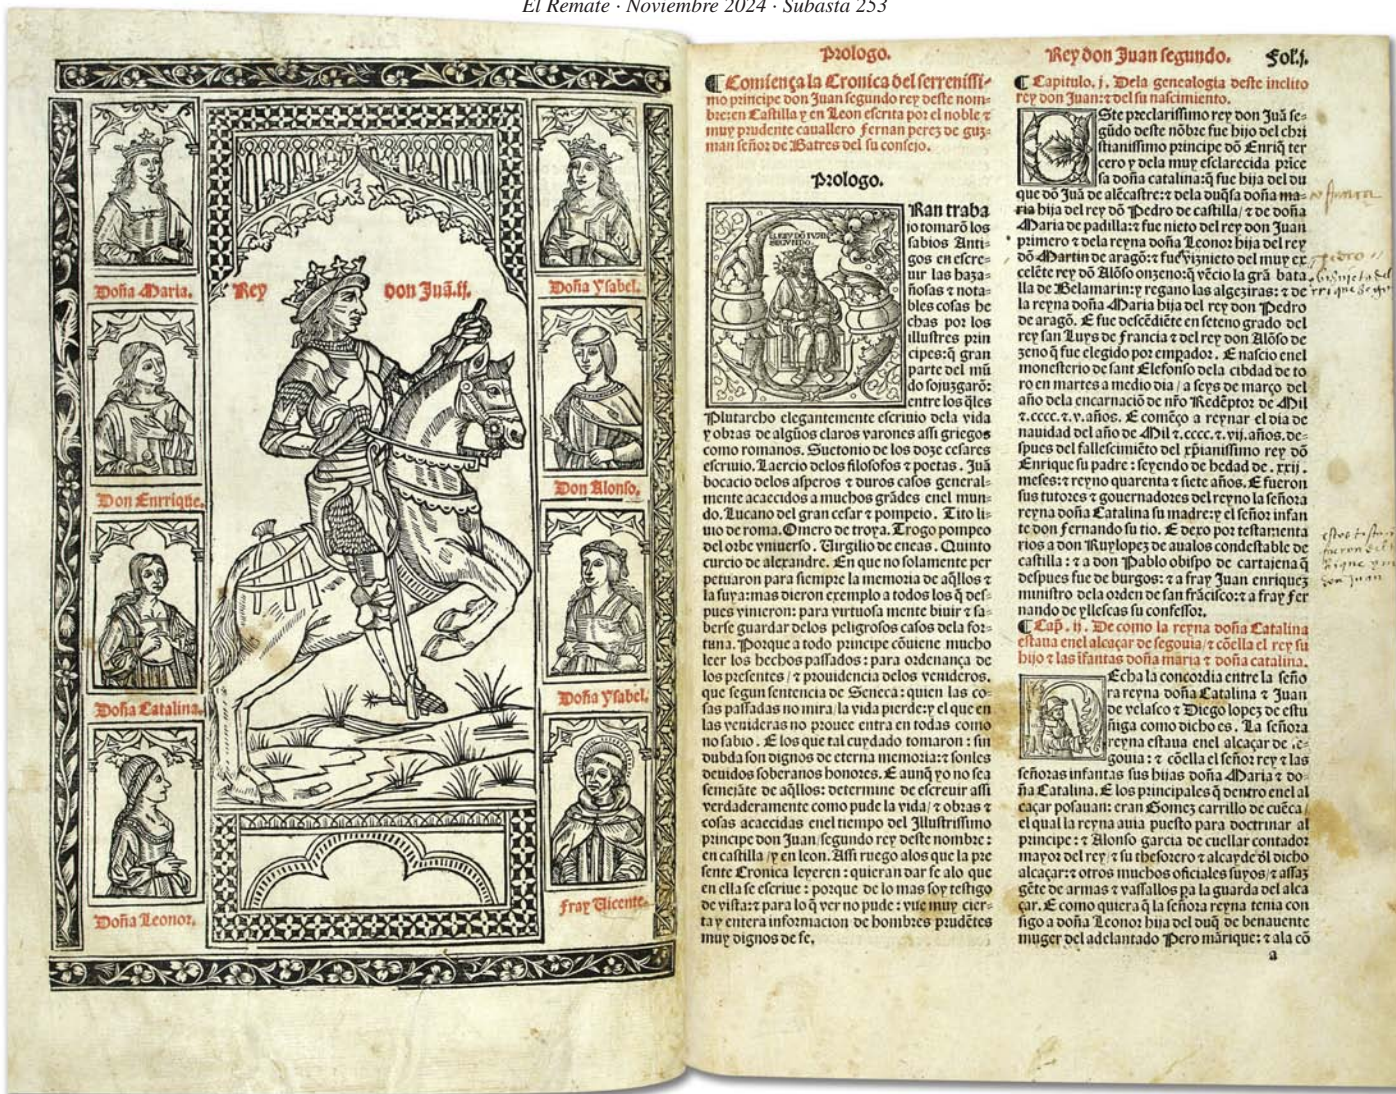 El Remate · Noviembre 2024 · Subasta 253
Doña Maria.
Rey don Juã.ij.
Doña Ysabel.
Don Enrrique.
Don Alonso.
Doña Catalina.
Doña Ysabel.
Doña Leonor.
fray Vicente.
Prologo.
¶ Comiença la Cronica del serenissi-
mo principe don Juan segundo rey deste nom-
bre:en Castilla y en Leon escrita por el noble ⁊
muy prudente cavallero Fernan perez de guz-
man señor de Batres del su consejo.
Prologo.
EL REY DŌ IVAN
SEGVNDO.
Ran traba
jo tomarõ los
sabios Anti-
gos en escre-
uir las haza-
ñosas ⁊ nota-
bles cosas he
chas por los
illustres prin
cipes:q̃ gran
parte del mũ
do sojuzgarõ:
entre los q̃les
Plutarcho elegantemente escriuio dela vida
y obras de algũos claros varones assi griegos
como romanos. Suetonio de los doze cesares
escriuio. Laercio delos filosofos ⁊ poetas. Juã
bocacio delos asperos ⁊ duros casos general-
mente acaecidos a muchos grãdes enel mun-
do. Lucano del gran cesar ⁊ pompeio. Tito li-
uio de roma. Omero de troya. Trogo pompeo
del orbe vniuerso. Virgilio de eneas. Quinto
curcio de alexandre. En que no solamente per
petuaron para siempre la memoria de aq̃llos ⁊
la suya:mas dieron exemplo a todos los q̃ des-
pues vinieron: para virtuosa mente biuir ⁊ sa-
berse guardar delos peligrosos casos dela for-
tuna. Porque a todo principe cõuiene mucho
leer los hechos passados: para ordenança de
los presentes / ⁊ prouidencia delos venideros.
que segun sentencia de Seneca: quien las co-
sas passadas no mira/la vida pierde:y el que en
las venideras no prouee entra en todas como
no sabio. E los que tal cuydado tomaron: sin
dubda son dignos de eterna memoria:⁊ sonles
deuidos soberanos honores. E aunq̃ yo no sea
semejãte de aq̃llos: determine de escreuir assi
verdaderamente como pude la vida/⁊ obras ⁊
cosas acaecidas enel tiempo del Illustrissimo
principe don Juan/segundo rey deste nombre:
en castilla /y en leon. Assi ruego alos que la pre
sente Cronica leyeren: quieran dar fe alo que
en ella se escriue: porque de lo mas soy testigo
de vista:⁊ para lo q̃ ver no pude: vue muy cier-
ta y entera informacion de hombres prudẽtes
muy dignos de fe.
Rey don Juan segundo. Fol.j.
¶ Capitulo. j. Dela genealogia deste inclito
rey don Juan:⁊ del su nascimiento.
Ste preclarissimo rey don Juã se-
gũdo deste nõbre fue hijo del chri
stianissimo principe dõ Enriq̃ ter
cero y dela muy esclarecida prĩce
sa doña catalina:q̃ fue hija del du
que dõ Juã de alẽcastre:⁊ dela duq̃sa doña ma-
ria hija del rey dõ Pedro de castilla/⁊ de doña
Maria de padilla:⁊ fue nieto del rey don Juan
primero ⁊ dela reyna doña Leonor hija del rey
dõ Martin de aragõ:⁊ fue viznieto del muy ex
celẽte rey dõ Alõso onzeno:q̃ vẽcio la grã bata
lla de Belamarin:y regano las algeziras: ⁊ de
la reyna doña Maria hija del rey don Pedro
de aragõ. E fue descẽdiẽte en seteno grado del
rey san Luys de Francia ⁊ del rey don Alõso de
zeno q̃ fue elegido por empador. E nascio enel
monesterio de sant Elefonso dela cibdad de to
ro en martes a medio dia / a seys de março del
año dela encarnaciõ de nr̃o Redẽptor de Mil
⁊.cccc.⁊.v.años. E comẽço a reynar el dia de
nauidad del año de Mil ⁊.cccc.⁊.vij.años.de-
spues del fallescimiẽto del xp̃ianissimo rey dõ
Enrique su padre: seyendo de hedad de .xxij.
meses:⁊ reyno quarenta ⁊ siete años. E fueron
sus tutores ⁊ gouernadores del reyno la señora
reyna doña Catalina su madre:y el señor infan
te don Fernando su tio. E dexo por testamenta
rios a don Ruylopez de aualos condestable de
castilla: ⁊ a don Pablo obispo de cartajena q̃
despues fue de burgos: ⁊ a fray Juan enriquez
ministro dela orden de san frãcisco:⁊ a fray fer
nando de yllescas su confessor.
¶ Cap̃. ij. De como la reyna doña Catalina
estaua enel alcaçar de segouia/⁊ cõella el rey su
hijo ⁊ las ĩfantas doña maria ⁊ doña catalina.
Echa la concordia entre la seño
ra reyna doña Catalina ⁊ Juan
de velasco ⁊ Diego lopez de estu
ñiga como dicho es. La señora
reyna estaua enel alcaçar de se-
gouia: ⁊ cõella el señor rey ⁊ las
señoras infantas sus hijas doña Maria ⁊ do-
ña Catalina. E los principales q̃ dentro enel al
caçar posauan: eran Gomez carrillo de cuẽca/
el qual la reyna auia puesto para doctrinar al
principe: ⁊ Alonso garcia de cuellar contador
mayor del rey/⁊ su thesorero ⁊ alcayde ðl dicho
alcaçar:⁊ otros muchos oficiales suyos/⁊ assaz
gẽte de armas ⁊ vassallos pa la guarda del alca
çar. E como quiera q̃ la señora reyna tenia con
sigo a doña Leonor hija del duq̃ de benauente
muger del adelantado Pero mãrique: ⁊ ala cõ
a